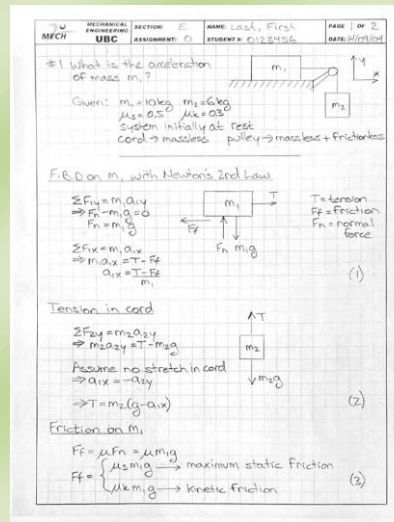 MECH
MECHANICAL ENGINEERING UBC
SECTION: E
ASSIGNMENT: 0
NAME: Last, First
STUDENT #: 0123456
PAGE 1 OF 2
DATE: 14/09/04
#1 What is the acceleration
of mass m₁?
m₁
y
x
m₂
Given: m₁=10kg m₂=6kg
μs=0.5 μk=0.3
system initially at rest
cord → massless pulley → massless + frictionless
F.B.D on m₁ with Newton's 2nd Law
ΣF1y = m₁a1y
⇒ Fn-m₁g=0
Fn=m₁g
m₁
T
Ff
Fn m₁g
T=tension
Ff=friction
Fn=normal
force
ΣF1x=m₁a1x
⇒ m₁a1x=T-Ff
a1x=T-Ff
m₁
(1)
Tension in cord
ΣF2y=m₂a2y
⇒ m₂a2y=T-m₂g
T
m₂
m₂g
Assume no stretch in cord
⇒ a1x=-a2y
⇒T=m₂(g-a1x)
(2)
Friction on m₁
Ff=μFn=μm₁g
Ff= { μsm₁g → maximum static friction
μkm₁g → kinetic friction
(3)